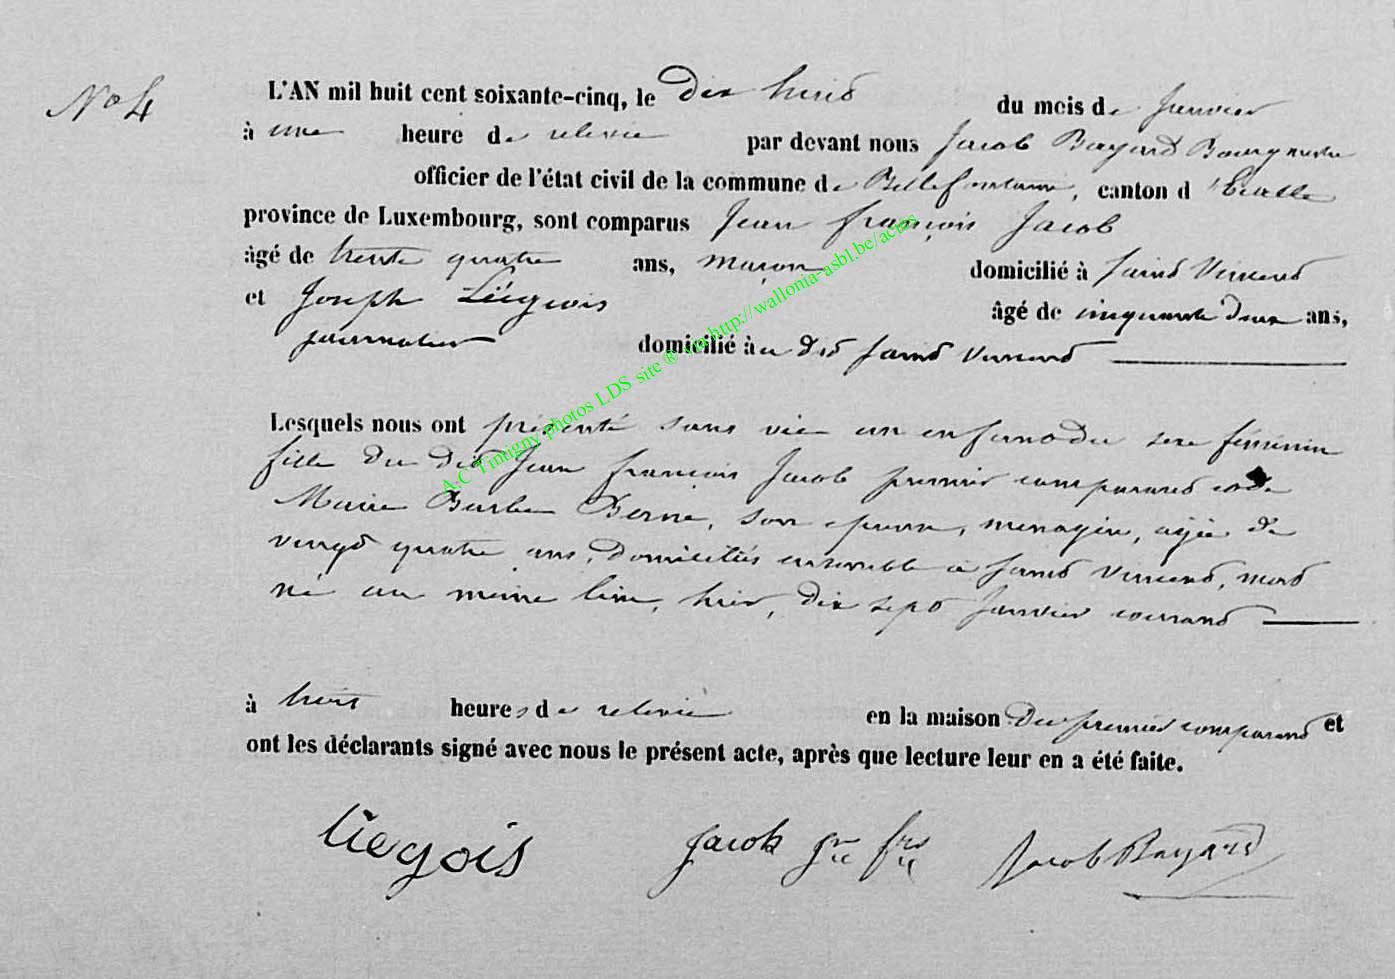 No 4
L'AN mil huit cent soixante-cinq, le dix huit du mois de Janvier
à une heure de relevée par devant nous Jacob Bayard Bourgmestre
officier de l'état civil de la commune de Bellefontaine, canton d'Etalle
province de Luxembourg, sont comparus Jean françois Jacob
âgé de trente quatre ans, maçon domicilié à Saint Vincent
et Joseph Liégeois âgé de cinquante deux ans,
journalier domicilié à au dit Saint Vincent
Lesquels nous ont présenté sans vie un enfant du sexe féminin
fille du dit Jean françois Jacob premier comparant et de
Marie Barbe Derne, son épouse, menagère, agée de
vingt quatre ans, domiciliés ensemble à Saint Vincent, mort
né au même lieu, hier, dix sept Janvier courant
à huit heures de relevée en la maison du premier comparant et
ont les déclarants signé avec nous le présent acte, après que lecture leur en a été faite.
Liegois Jacob Jn frs Jacob Bayard
A.C Tintigny photos LDS site ® via http://wallonia-asbl.be/actes